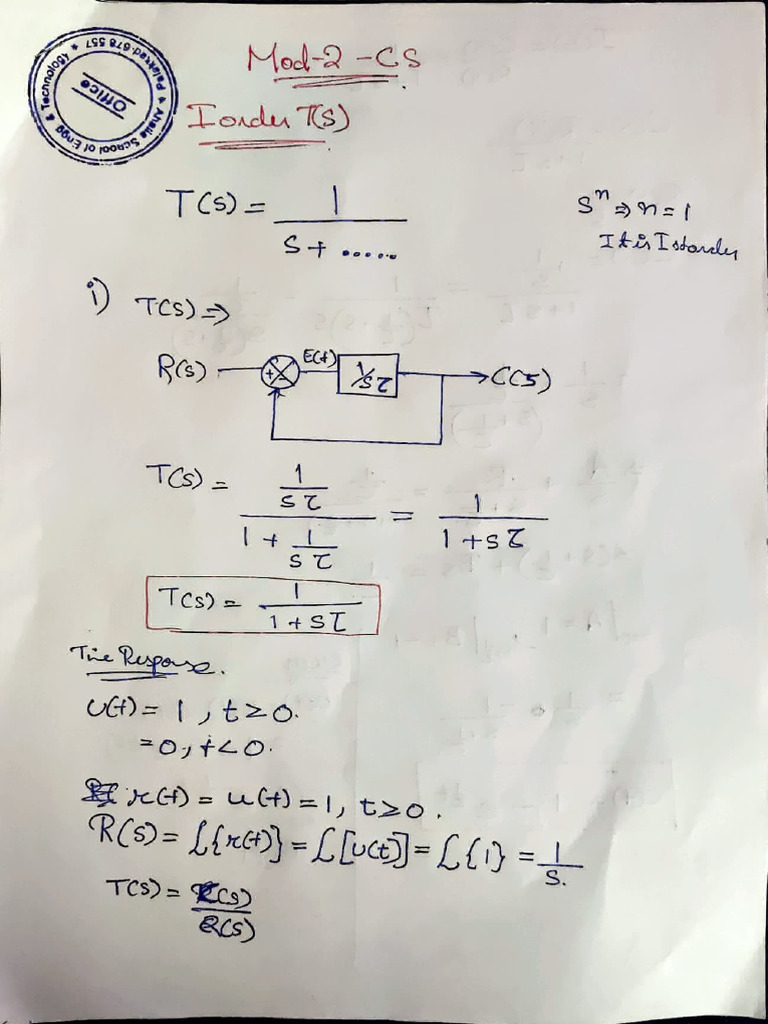 Mod-2 -CS
Ahalia School of Engg & Technology * Palakkad 678 557 *
Office
I order T(S)
T(S) = 1 / S + ......
S^n ⇒ n = 1
It is I st order
i) T(S) ⇒
R(S) + - E(t) 1/Sτ C(S)
T(S) = (1/Sτ) / (1 + 1/Sτ) = 1 / 1+Sτ
T(S) = 1 / 1+Sτ
Time Response.
U(t) = 1 , t ≥ 0.
= 0 , t < 0.
r(t) = u(t) = 1, t ≥ 0.
R(S) = L{r(t)} = L[U(t)] = L{1} = 1/S.
T(S) = C(S) / R(S)